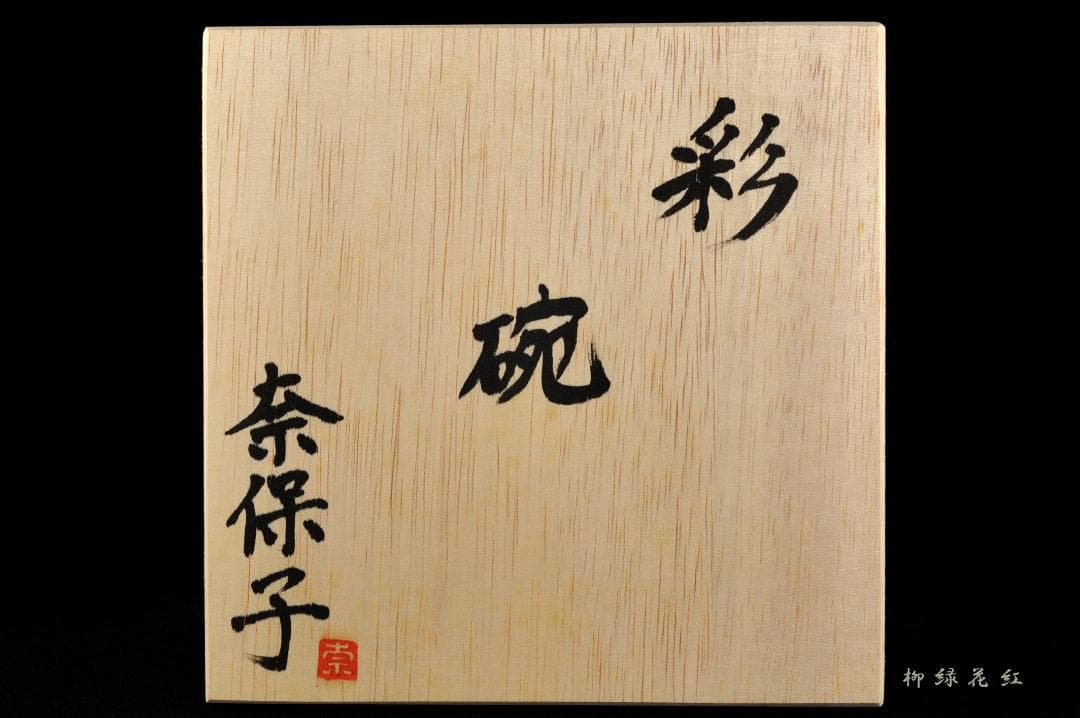 彩
碗
奈保子
奈
柳緑花红